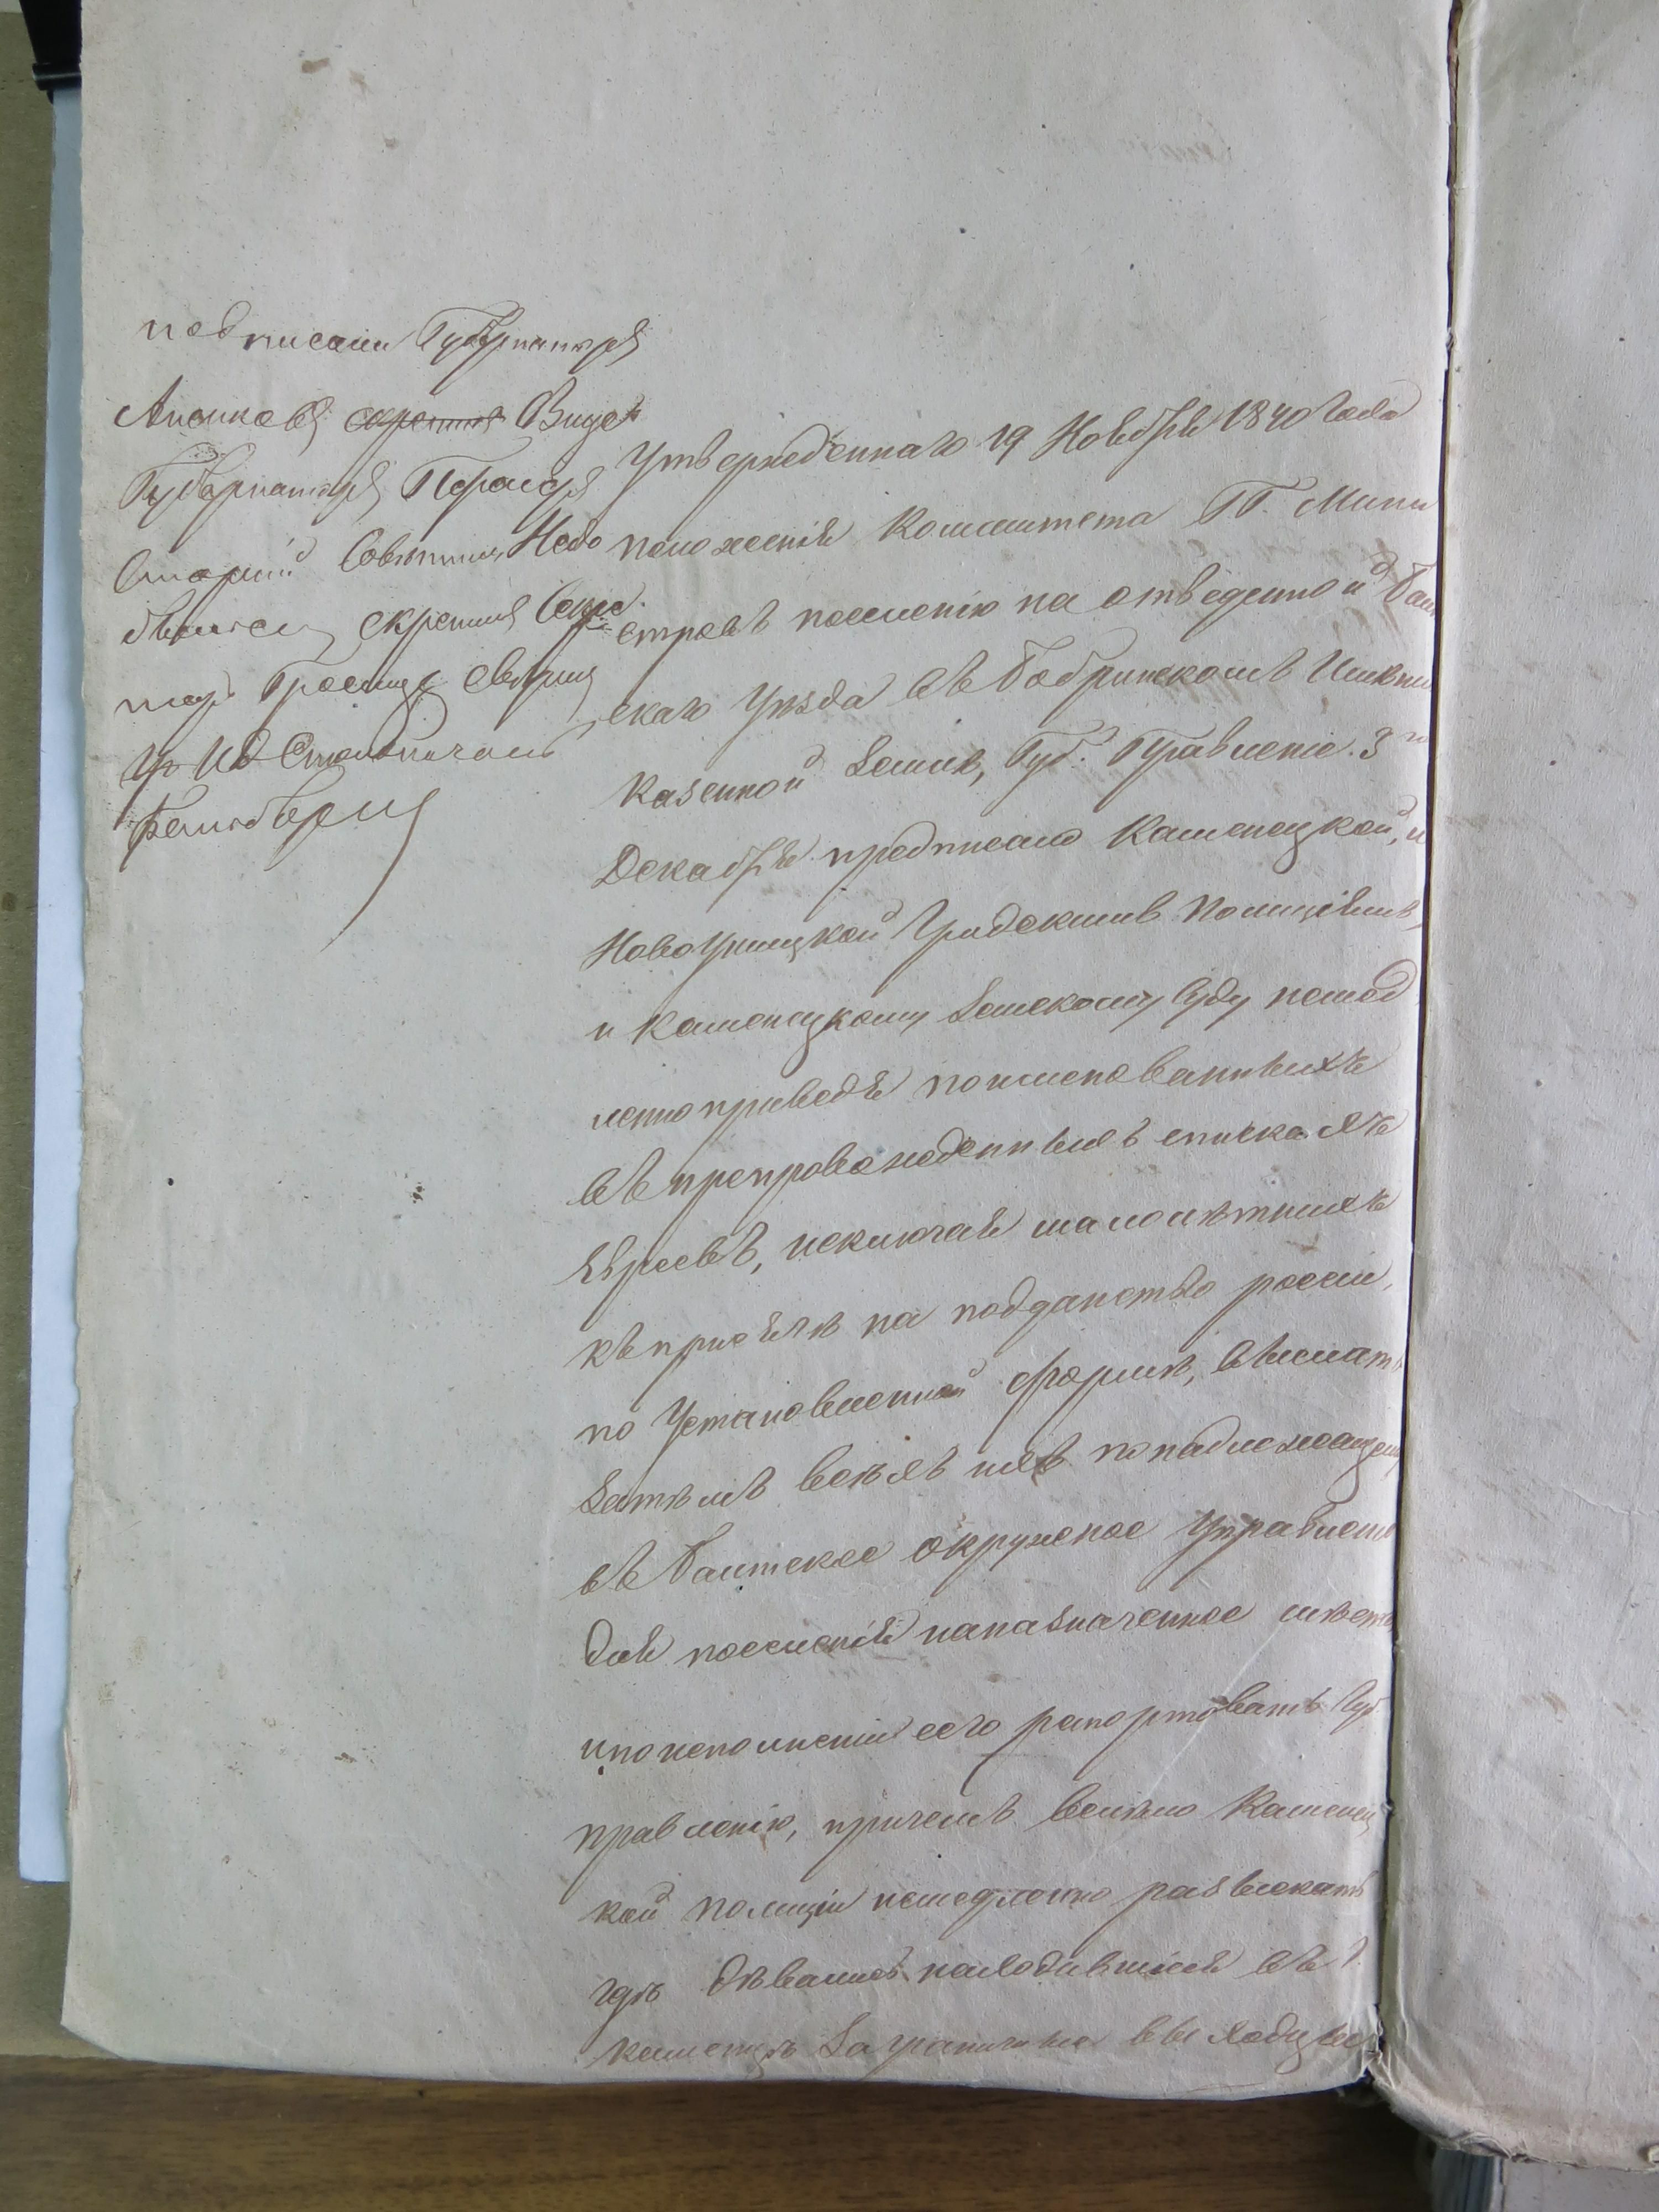 подписали Губернаторъ
Вице
Губернаторъ
Старшій Совѣтникъ
скрепилъ Секре
таръ свѣрилъ
Столоначаль
утвержденнаго 19 Ноября 1840 Года
положенія Комитета ГГ. Мини
стровъ поселенію на отведенной Балт
скаго уѣзда въ Бобринскомъ Имѣніи
Казенной Землѣ, Губ. Правленіе 3го
Декабря предписало Каменецкой, и
Новоушицкой Градскимъ Полиціямъ,
и Каменецкому Земскому Суду немед
ленно приведя поименованныхъ
въ препровожденныхъ спискахъ
Евреевъ, исключая малолѣтнихъ
къ присягѣ на подданство россіи,
по установленной формѣ, выслать
затѣмъ всѣхъ ихъ по надлежащему
въ Балтское окружное Управленіе
для поселенія на назначенное мѣсто,
и по исполненіи сего рапортовать Губ.
правленію, причемъ велѣно Каменец
кой полиціи немедленно разыскать
гдѣ дѣвались находившіеся въ Г.
Каменцѣ Заграничные выходцы